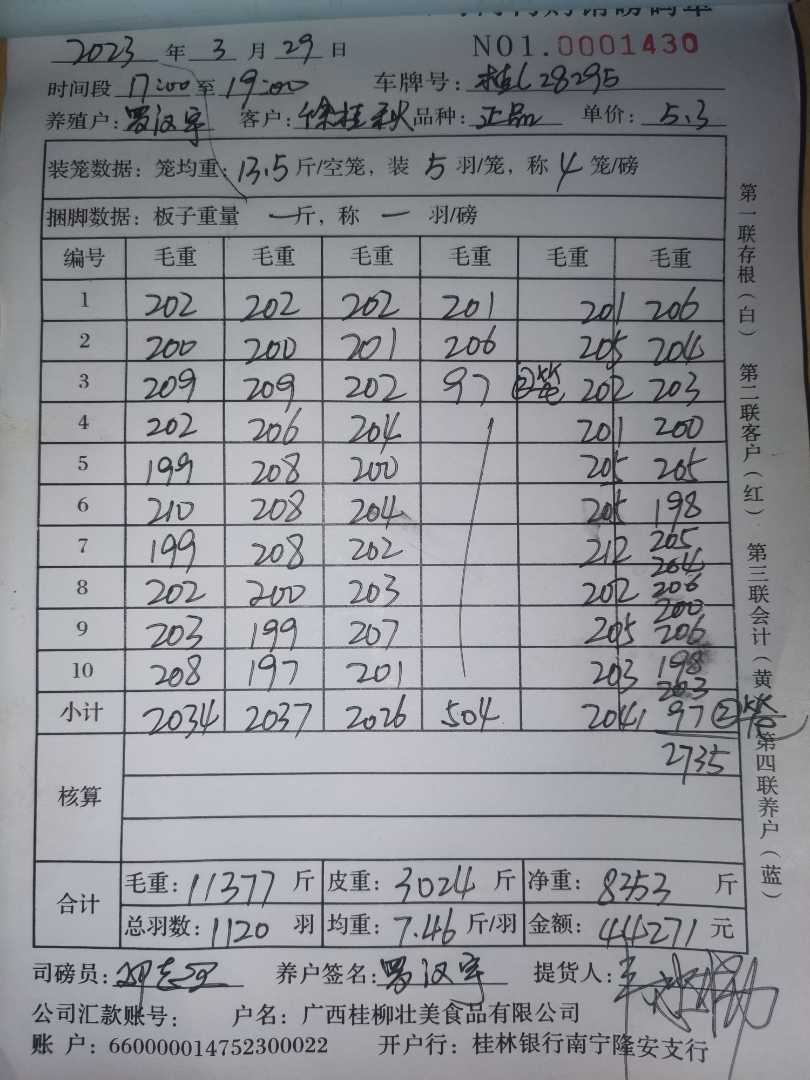 2023 年 3 月 29 日 NO1.0001430
时间段 17:00 至 19:00 车牌号: 桂L28295
养殖户: 罗汉宇 客户: 徐桂秋 品种: 正品 单价: 5.3
装笼数据: 笼均重: 13.5 斤/空笼, 装 5 羽/笼, 称 4 笼/磅
捆脚数据: 板子重量 一 斤, 称 一 羽/磅
编号 毛重 毛重 毛重 毛重 毛重 毛重
1 202 202 202 201 201 206
2 200 200 201 206 205 204
3 209 209 202 97 ② 202 203
4 202 206 204 201 200
5 199 208 200 205 205
6 210 208 204 205 198
7 199 208 202 212 205
204
8 202 200 203 202 206
200
9 203 199 207 205 206
10 208 197 201 203 198
203
小计 2034 2037 2026 504 2041 97 ②
2735
核算
合计 毛重: 11377 斤 皮重: 3024 斤 净重: 8353 斤
总羽数: 1120 羽 均重: 7.46 斤/羽 金额: 44271 元
司磅员: 养户签名: 罗汉宇 提货人:
公司汇款账号: 户名: 广西桂柳壮美食品有限公司
账 户: 660000014752300022 开户行: 桂林银行南宁隆安支行
第一联存根(白) 第二联客户(红) 第三联会计(黄) 第四联养户(蓝)